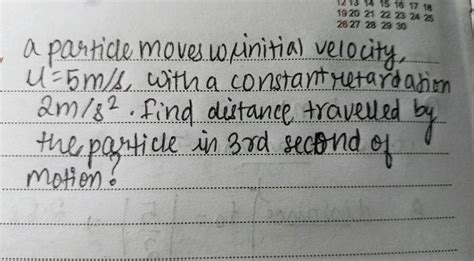 12 13 14 15 16 17 18
19 20 21 22 23 24 25
26 27 28 29 30
a particle moves w initial velocity,
u=5m/s, with a constant retardation
2m/s². find distance travelled by
the particle in 3rd second of
motion?